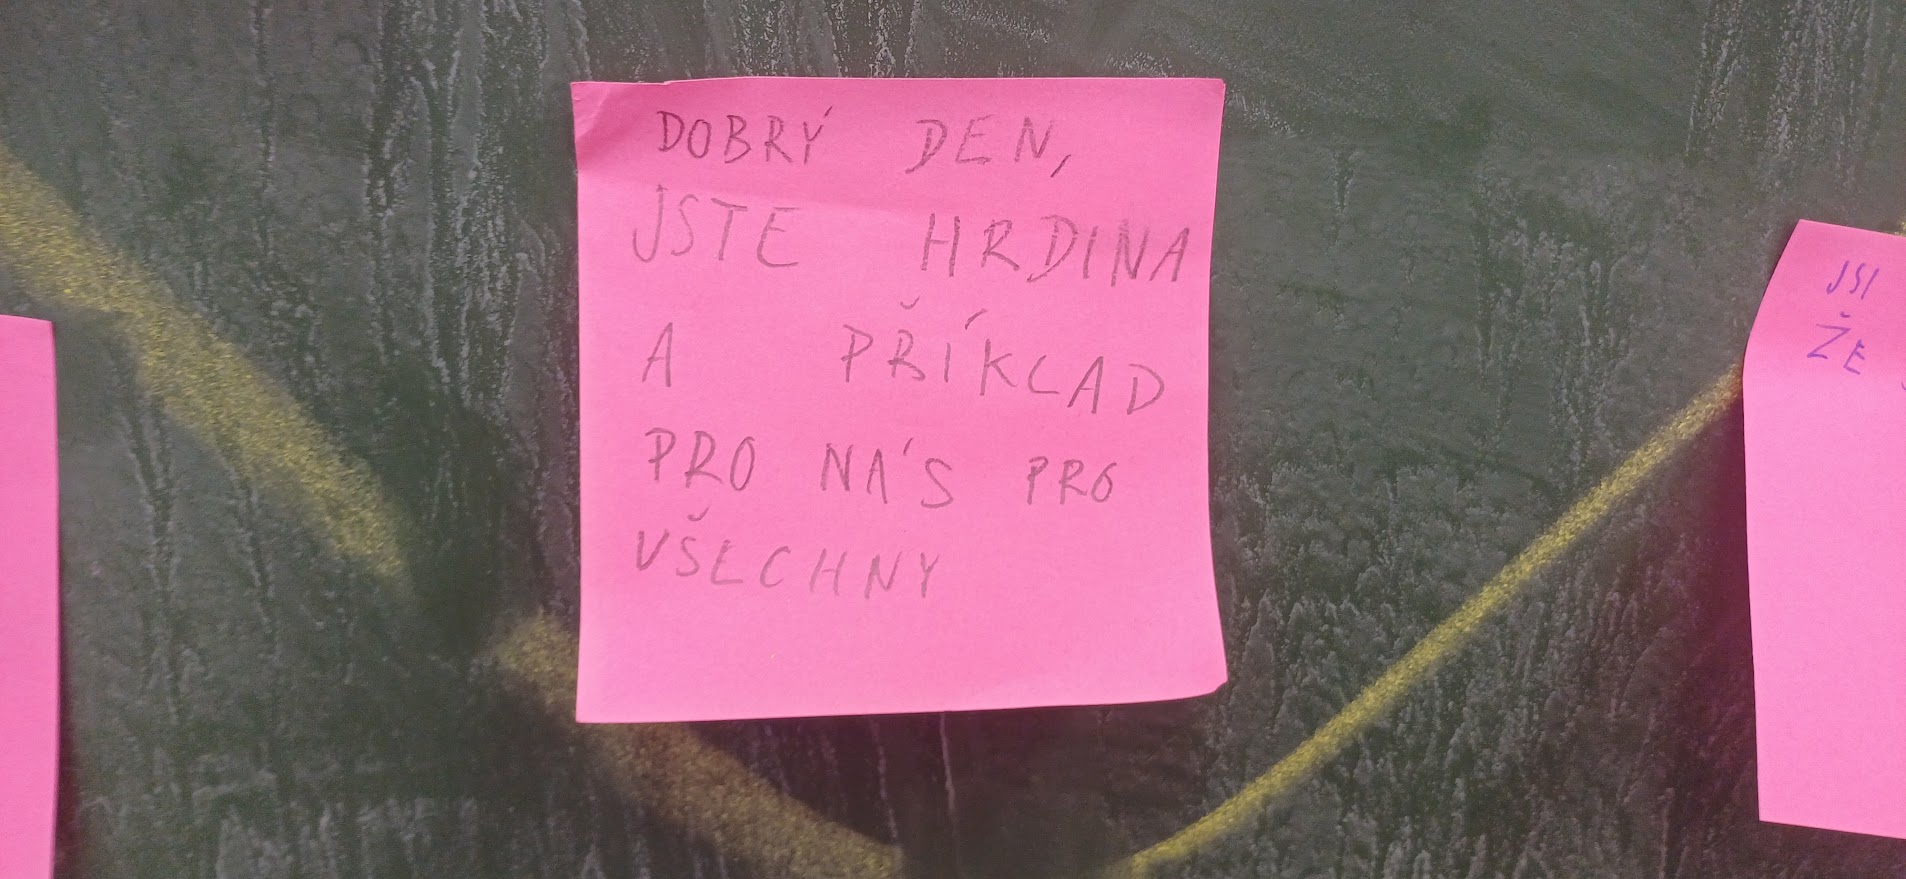 DOBRÝ DEN,
JSTE HRDINA
A PŘÍKLAD
PRO NÁS PRO
VŠECHNY
JSI
ŽE